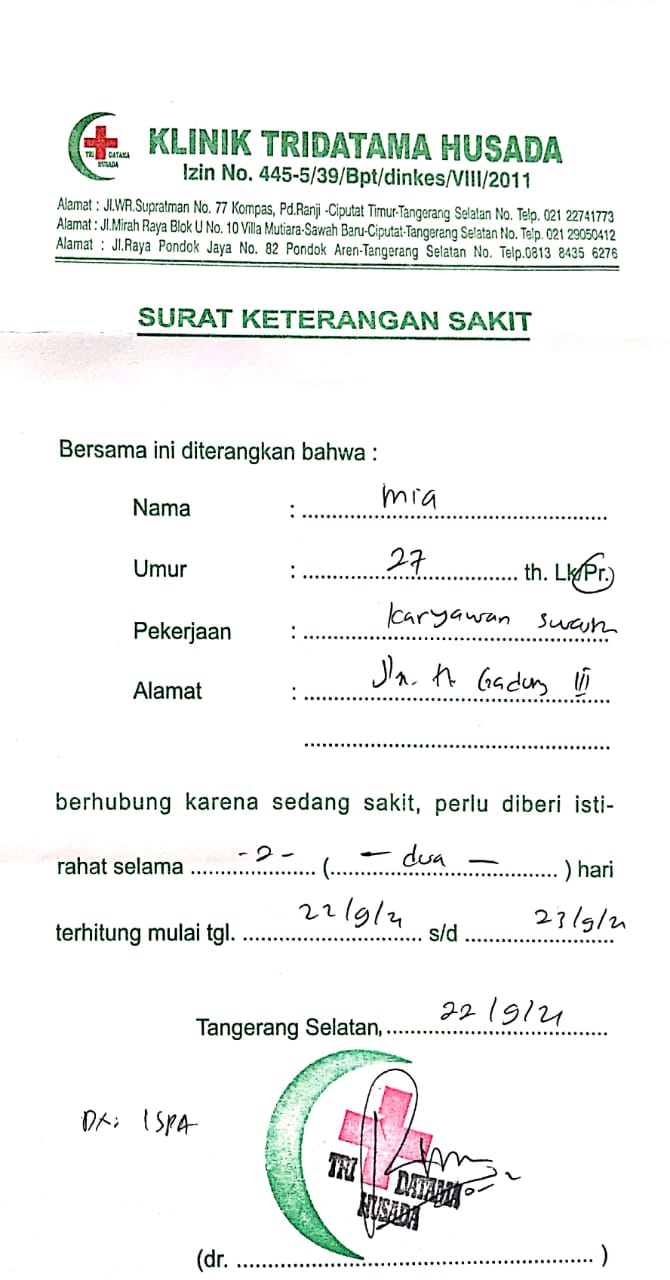 TRI DATAMA
HUSADA
KLINIK TRIDATAMA HUSADA
Izin No. 445-5/39/Bpt/dinkes/VIII/2011
Alamat : Jl.WR.Supratman No. 77 Kompas, Pd.Ranji -Ciputat Timur-Tangerang Selatan No. Telp. 021 22741773
Alamat : Jl.Mirah Raya Blok U No. 10 Villa Mutiara-Sawah Baru-Ciputat-Tangerang Selatan No. Telp. 021 29050412
Alamat : Jl.Raya Pondok Jaya No. 82 Pondok Aren-Tangerang Selatan No. Telp.0813 8435 6276
SURAT KETERANGAN SAKIT
Bersama ini diterangkan bahwa :
Nama : mia
Umur : 27 th. Lk/Pr.
Pekerjaan : karyawan
Alamat : Jln. H Gadung III
berhubung karena sedang sakit, perlu diberi isti-
rahat selama -2- (- dua -) hari
terhitung mulai tgl. 22/9/21 s/d 23/9/21
Tangerang Selatan, 22/9/21
DX: ISPA
TRI DATAMA
HUSADA
(dr. )